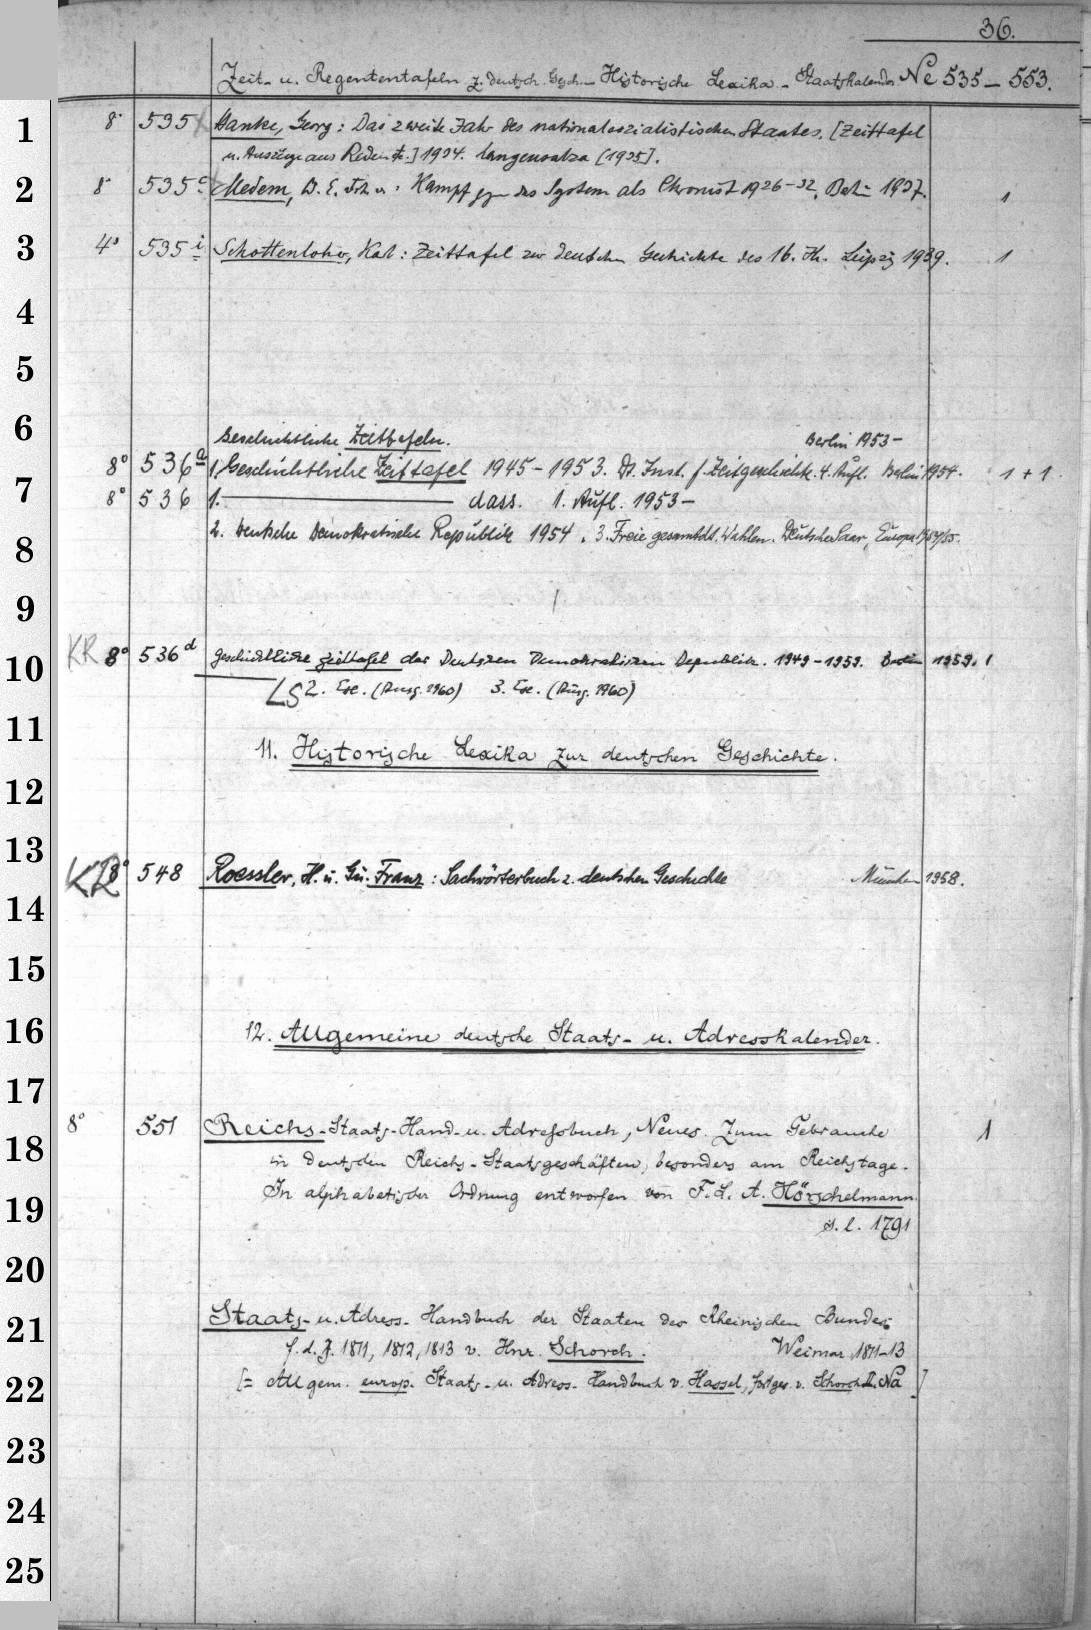 36.
Zeit- u. Regententafeln z. deutsch. Gesch. - Historische Lexika - Staatskalender Ne 535 - 553.
1 8° 535 Hanke, Georg: Das zweite Jahr des nationalsozialistischen Staates. [Zeittafel
u. Auszüge aus Reden etc.] 1934. Langensalza [1935].
2 8° 535 e Medem, W. E. Frh. v.: Kampf gegen das System als Chronist 1926-32. Berlin 1937. 1
3 4° 535 i Schottenloher, Karl: Zeittafel zur deutschen Geschichte des 16. Jh. Leipzig 1939. 1
4
5
6 Geschichtliche Zeittafeln. Berlin 1953 -
8° 536 a 1. Geschichtliche Zeittafel 1945 - 1953. Dt. Inst. f. Zeitgeschichte. 4. Aufl. Berlin 1954. 1 + 1
7 8° 536 1. dass. 1. Aufl. 1953 -
8 2. Deutsche Demokratische Republik 1954. 3. Freie gesamtdt. Wahlen. Deutsche Saar, Europa 1954/55.
9
KR 8° 536 d Geschichtliche Zeittafel der Deutschen Demokratischen Republik. 1949 - 1959. Berlin 1959. 1
10
LS 2. Exe. (Ausg. 1960) 3. Exe. (Ausg. 1960)
11 11. Historische Lexika zur deutschen Geschichte.
12
13
KR 8° 548 Roessler, H. u. Gü. Franz: Sachwörterbuch z. deutschen Geschichte München 1958.
14
15
16 12. Allgemeine deutsche Staats- u. Adresskalender.
17
8° 551 Reichs-Staats-Hand- u. Adreßbuch, Neues. Zum Gebrauche 1
18 in deutschen Reichs-Staatsgeschäften, besonders am Reichstage.
19 In alphabetischer Ordnung entworfen von F. L. A. Hörschelmann.
s. l. 1791
20
21 Staats- u. Adress-Handbuch der Staaten des Rheinischen Bundes
f. d. J. 1811, 1812, 1813 v. Hnr. Schorch. Weimar 1811-13
22 [= Allgem. europ. Staats- u. Adress-Handbuch v. Hassel, fortges. v. Schorch II. Na ]
23
24
25